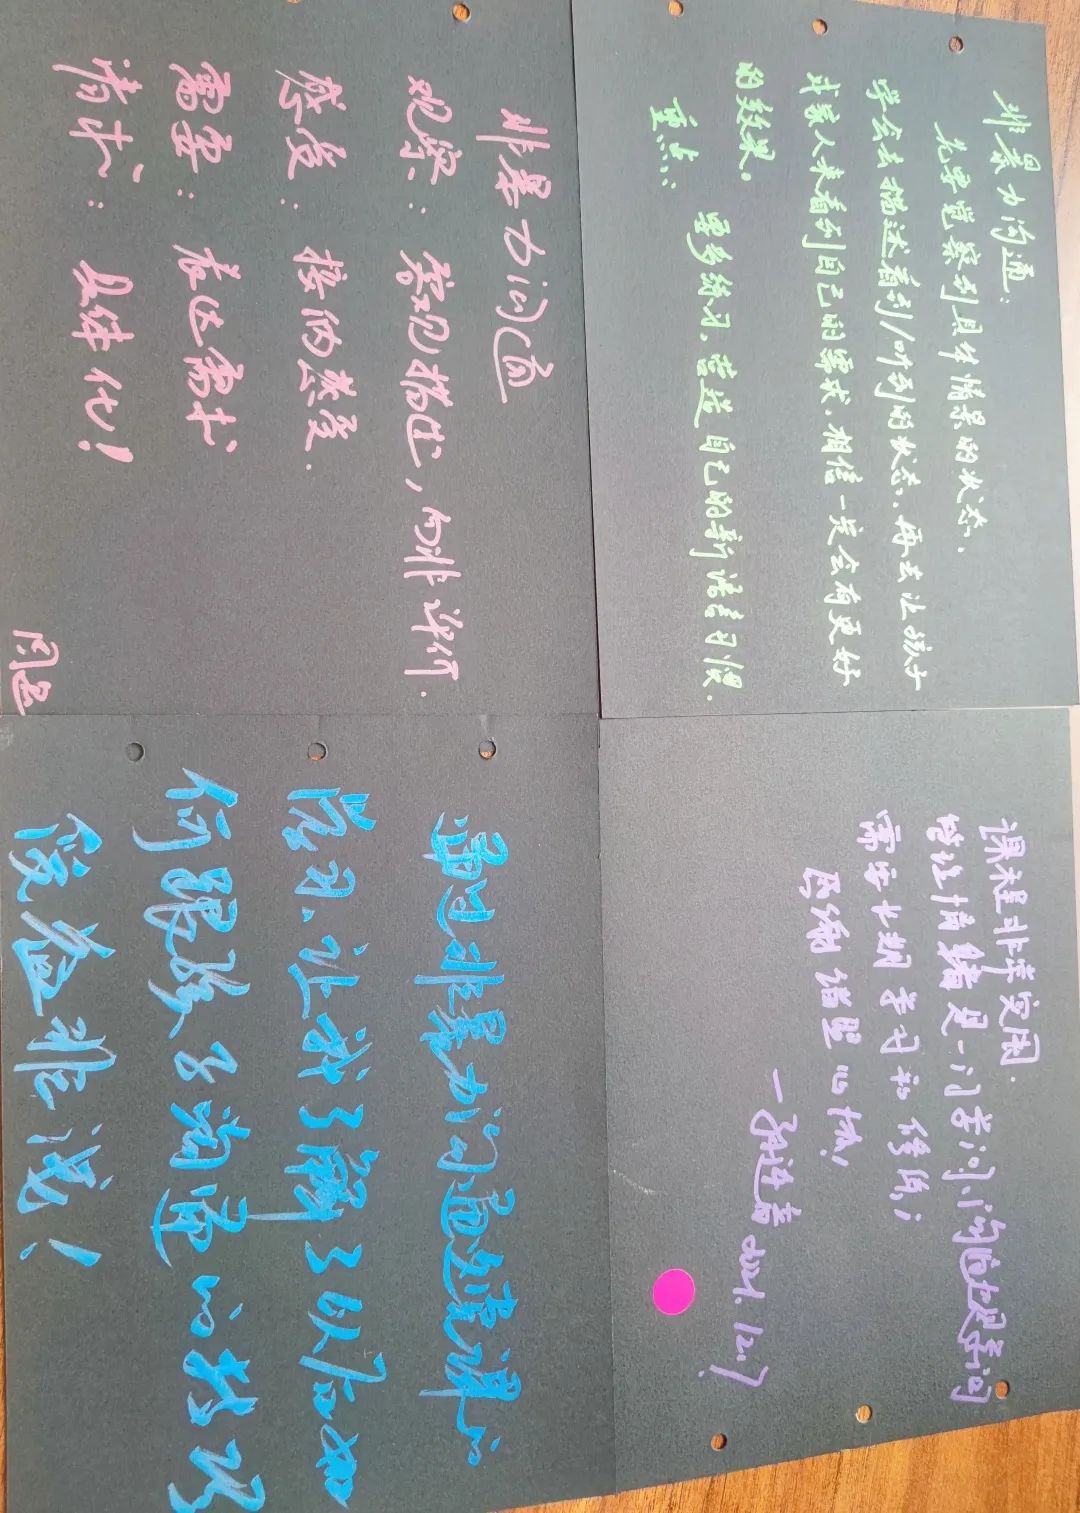 非暴力沟通:
先要觉察到具体情景的状态.
学会去描述看到/听到的状态、再去让孩子
或家人来看到自己的需求、相信一定会有更好
的效果。
重点:
要多练习、营造自己的新语言习惯.
非暴力沟通
观察: 客观描述, 而非评价.
感受: 接纳感受.
需要: 表达需求
请求: 具体化!
闫
课程非常实用.
管理情绪是一门学问、沟通也是学问
需要长期学习和修炼;
感谢 心城!
2024.12.7
通过非暴力沟通这堂课的
学习、让我了解了以后如
何跟孩子沟通的技巧
受益非浅!